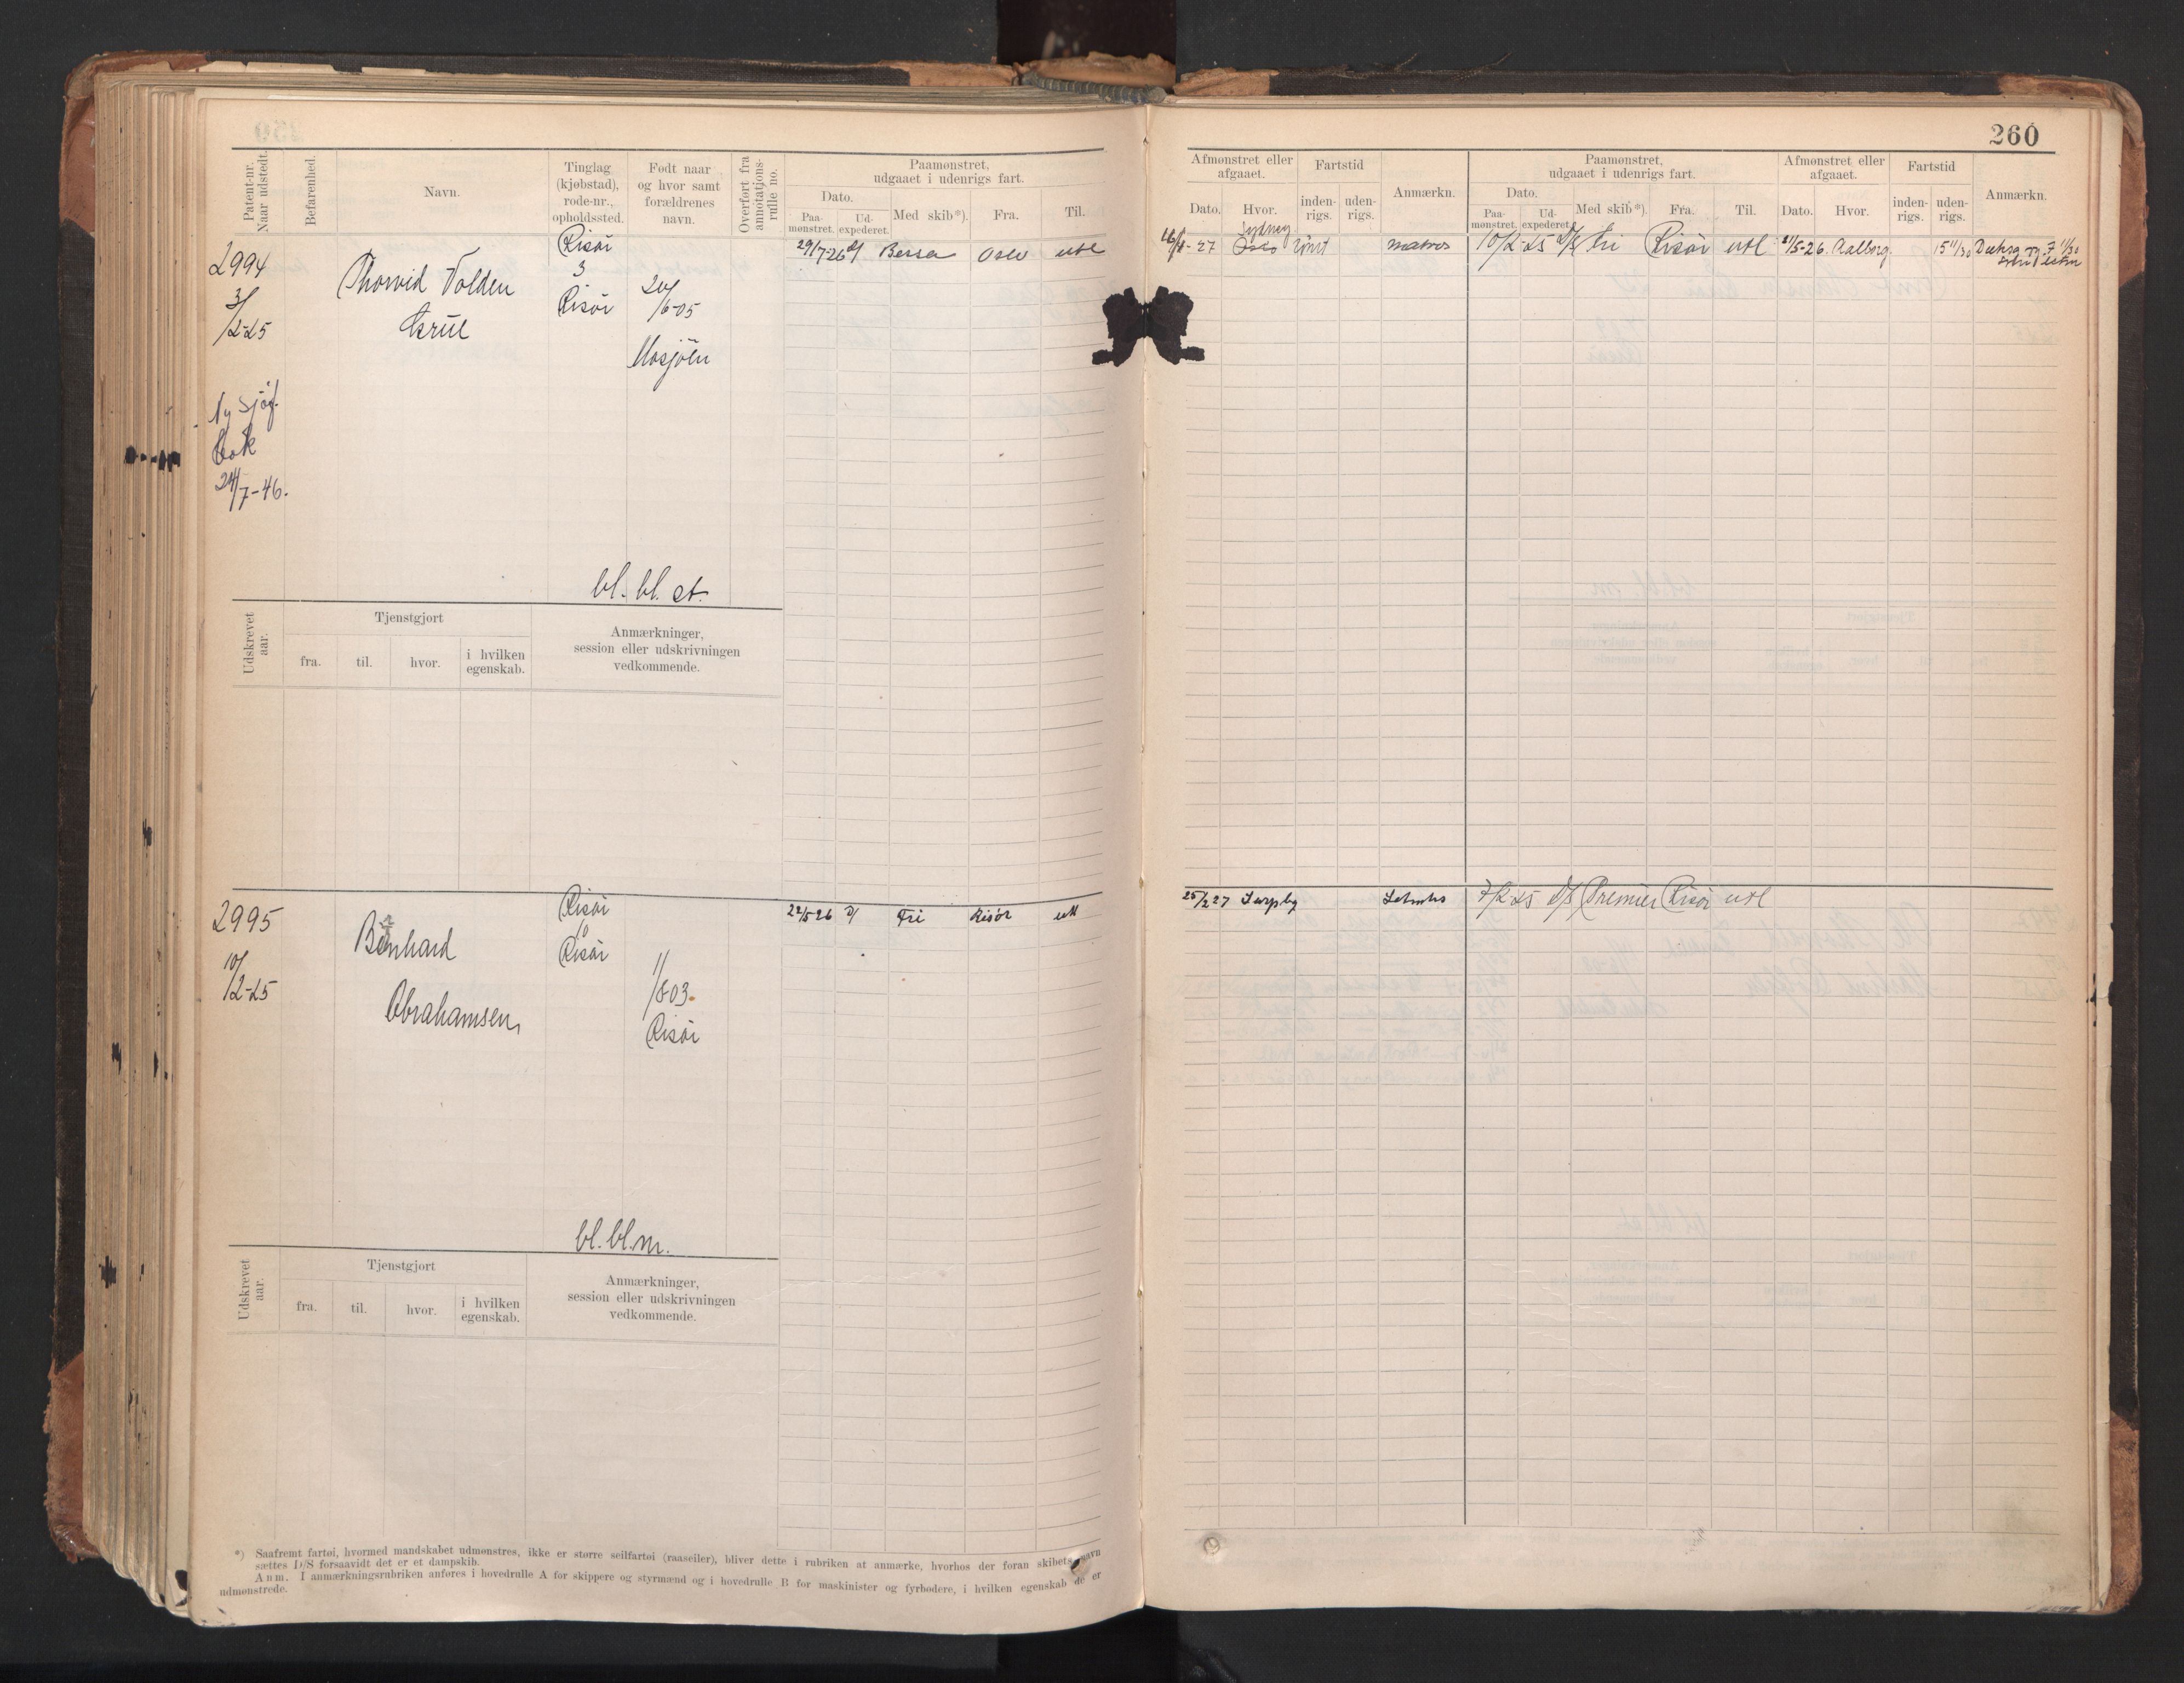 260
Patent-nr. Naar udstedt.
Befarenhed.
Navn.
Tinglag (kjøbstad), rode-nr., opholdssted.
Født naar og hvor samt forældrenes navn.
Overført fra annotations-rulle no.
Paamønstret, udgaaet i udenrigs fart.
Dato.
Paa-mønstret. Ud-expederet.
Med skib*).
Fra.
Til.
Afmønstret eller afgaaet.
Dato. Hvor.
Fartstid
inden-rigs. uden-rigs.
Anmærkn.
Paamønstret, udgaaet i udenrigs fart.
Dato.
Paa-mønstret. Ud-expederet.
Med skib*). Fra. Til.
Afmønstret eller afgaaet.
Dato. Hvor.
Fartstid
inden-rigs. uden-rigs.
Anmærkn.
2994
3/2-25
Thorvid Volden
Risør
3
Risør
20/6-05
Mosjöen
29/7-26 D/ Bessa Oslo utl
Sydney
16/8-27
matros
10/2-25 D/S Fri Risør utl
11/5-26. Aalborg.
15 11/30
Ny sjøf.
bok
24/7-46.
bl. bl. et.
Udskrevet aar.
Tjenstgjort
fra. til. hvor. i hvilken egenskab.
Anmærkninger,
session eller udskrivningen
vedkommende.
2995
10/2-25
Bernhard
Abrahamsen
Risør
Risør
1/8-03
Risør
22/5 26 D/ Fri Risør utl
25/2 27
7/2 25 D/S Premier Risør utl
bl. bl. m.
Udskrevet aar.
Tjenstgjort
fra. til. hvor. i hvilken egenskab.
Anmærkninger,
session eller udskrivningen
vedkommende.
*) Saafremt fartøi, hvormed mandskabet udmønstres, ikke er større seilfartøi (raaseiler), bliver dette i rubriken at anmærke, hvorhos der foran skibets navn
sættes D/S forsaavidt det er et dampskib.
Anm. I anmærkningsrubriken anføres i hovedrulle A for skippere og styrmænd og i hovedrulle B for maskinister og fyrbødere, i hvilken egenskab de er
udmønstrede.